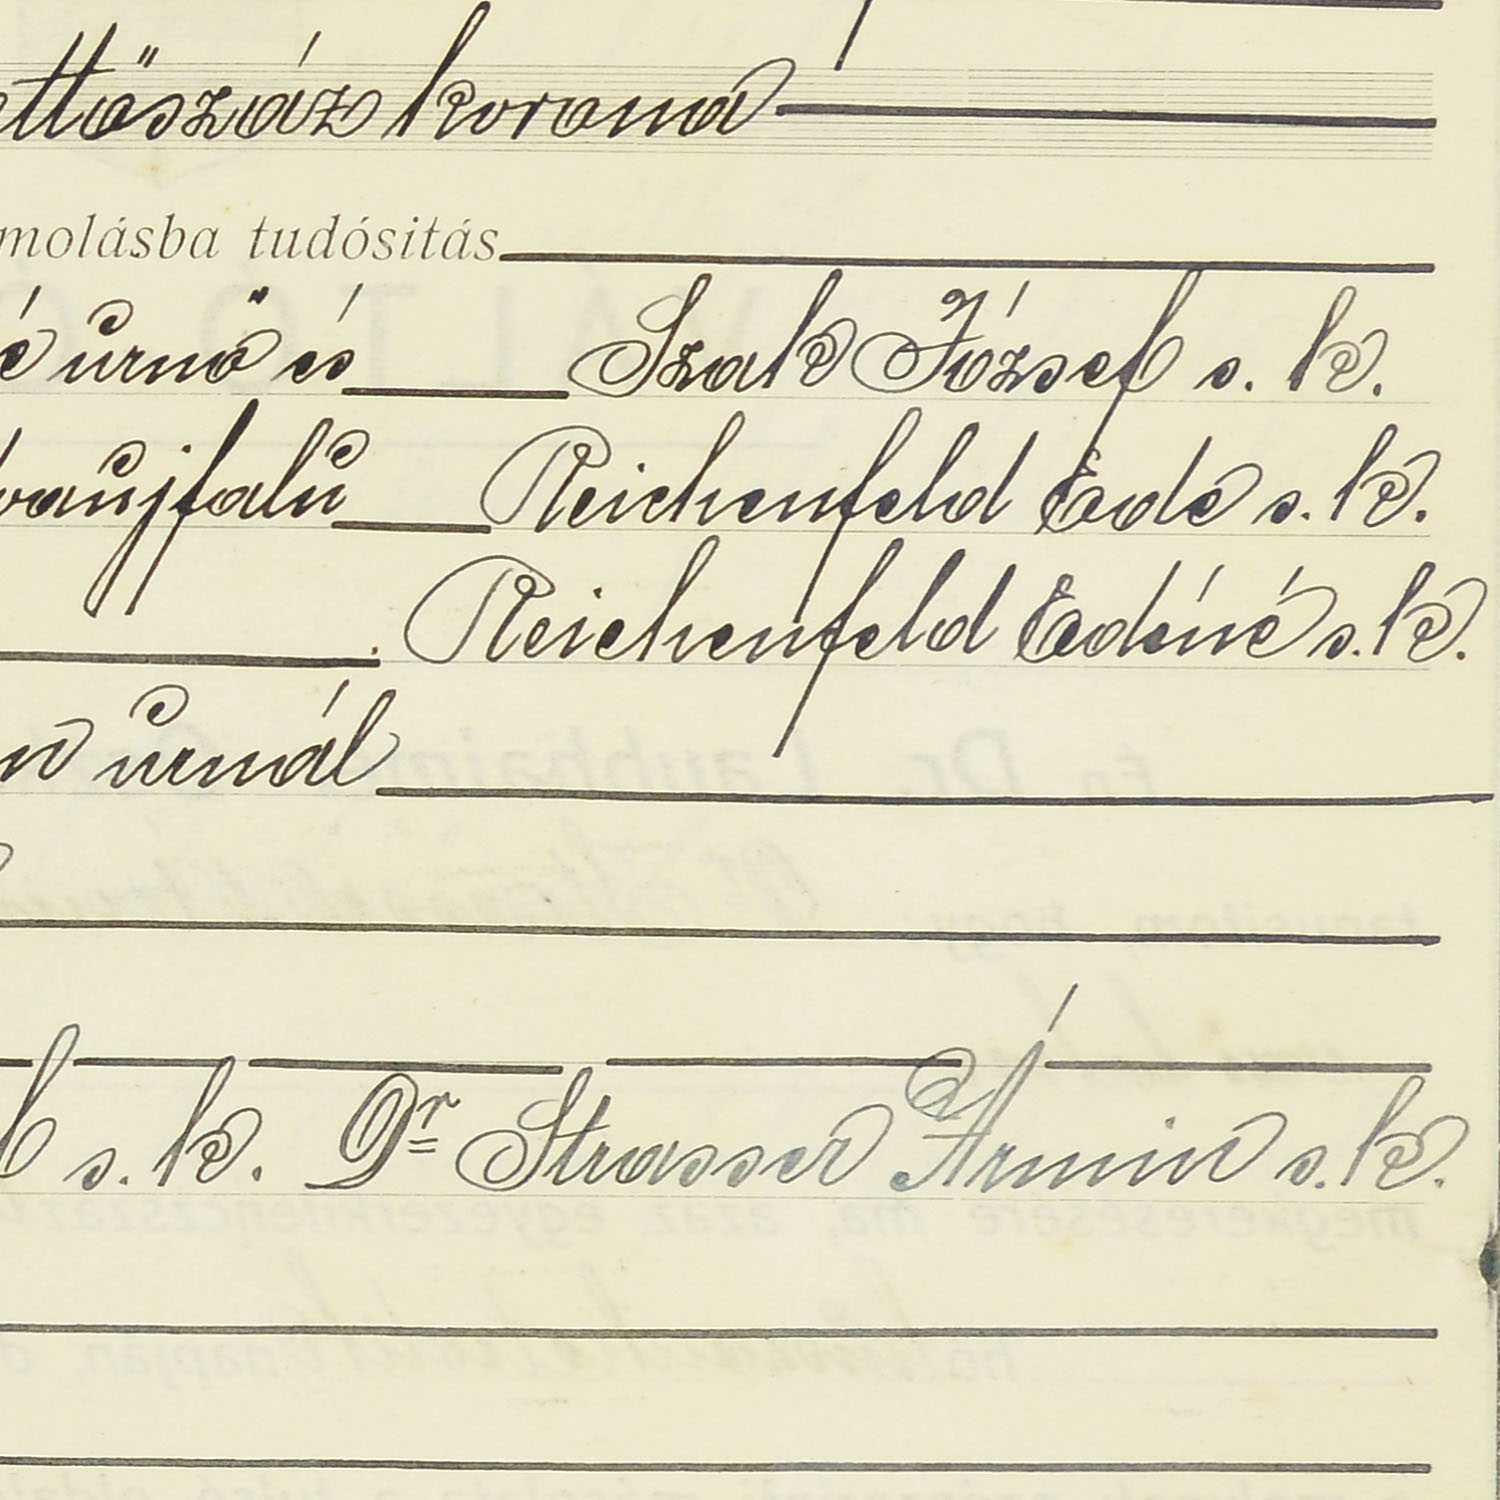 ettőszáz korona
molásba tudósitás
é úrnő és Szak József s. k.
vaújfalu Reichenfeld Ede s. k.
Reichenfeld Edéné s. k.
n úrnál
s. k. Dr Strasser Ármin s. k.